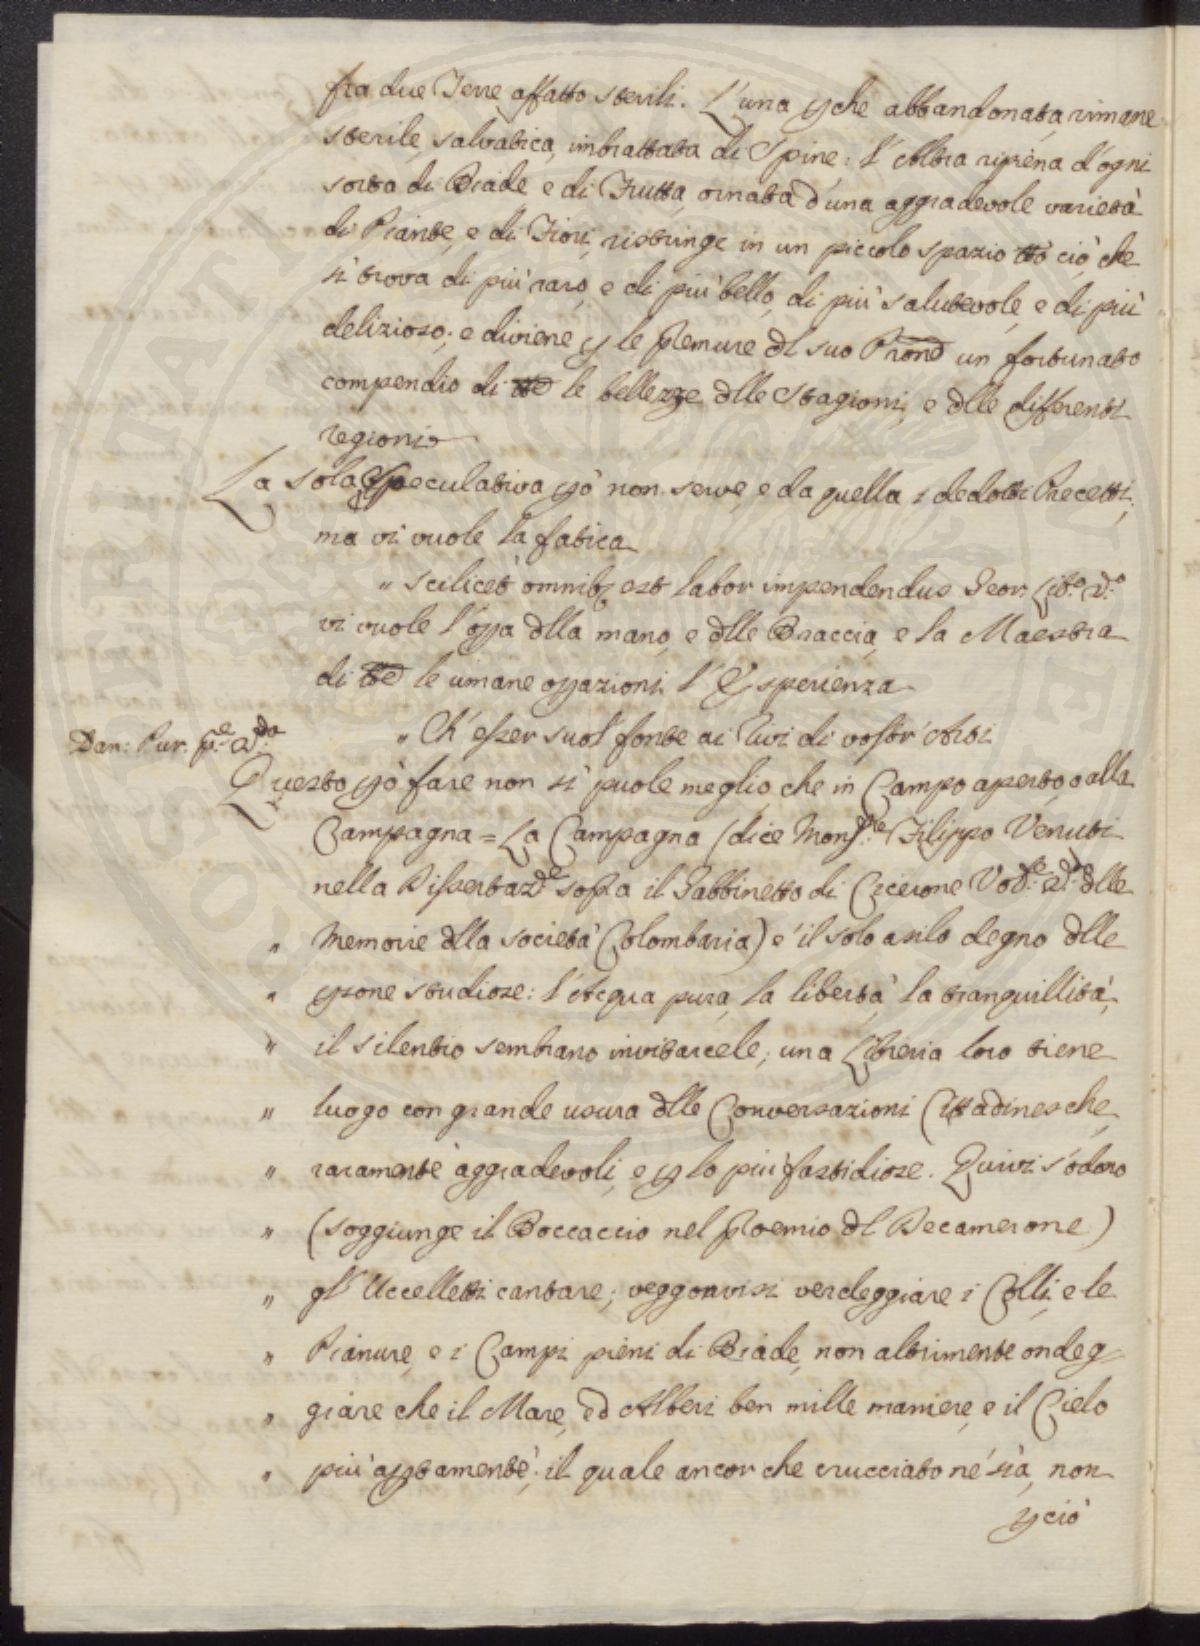 fra due Terre affatto sterili. L'una pche abbandonata, rimane
sterile, salvatica, imbrattata di Spine: l'Altra ripiena d'ogni
sorta di Biade, e di Frutta, ornata d'una aggradevole varietà
di Piante, e di Fiori, ristringe in un piccolo spazio tto ciò che
si trova di più raro, e di più bello, di più salutevole, e di più
delizioso; e diviene p le premure dl suo Prone un fortunato
compendio di tte le bellezze dlle Stagioni, e dlle differenti
regioni.
La sola Speculativa pò non serve, e da quella i dedotti Precetti;
ma vi vuole la fatica
" Scilicet omnibq est labor impendendus Geor: Lib.o 2.o
vi vuole l'oppa dlla mano, e dlle Braccia, e la Maestra
di tte le umane oppazioni l'Esperienza
Dan: Par. p.e 2.do
" Ch'esser suol fonte ai rivi di vostr'Arti
Questo pò fare non si puole meglio, che in Campo aperto, o alla
Campagna = La Campagna (dice Mons.re Filippo Venuti
nella Dissertaz.e sopra il Gabbinetto di Cicerone Vol.e 2.do dlle
" Memorie dlla società Colombaria) è il solo asilo degno dlle
" psone studiose: l'Acqua pura, la libertà, la tranquillità,
" il silentio sembrano invitarcele; una Libreria loro tiene
" luogo con grande usura dlle Conversazioni Cittadinesche,
" raramente aggradevoli, e p lo più fastidiose. Quivi s'odono
" (soggiunge il Boccaccio nel Proemio dl Decamerone)
" gl'Uccelletti cantare; veggonvisi verdeggiare i Colli, e le
" Pianure, e i Campi pieni di Biade, non altrimente ondeg
" giare che il Mare, ed Alberi ben mille maniere, e il Cielo
" più aptamente; il quale ancor che crucciato ne sia, non
pciò